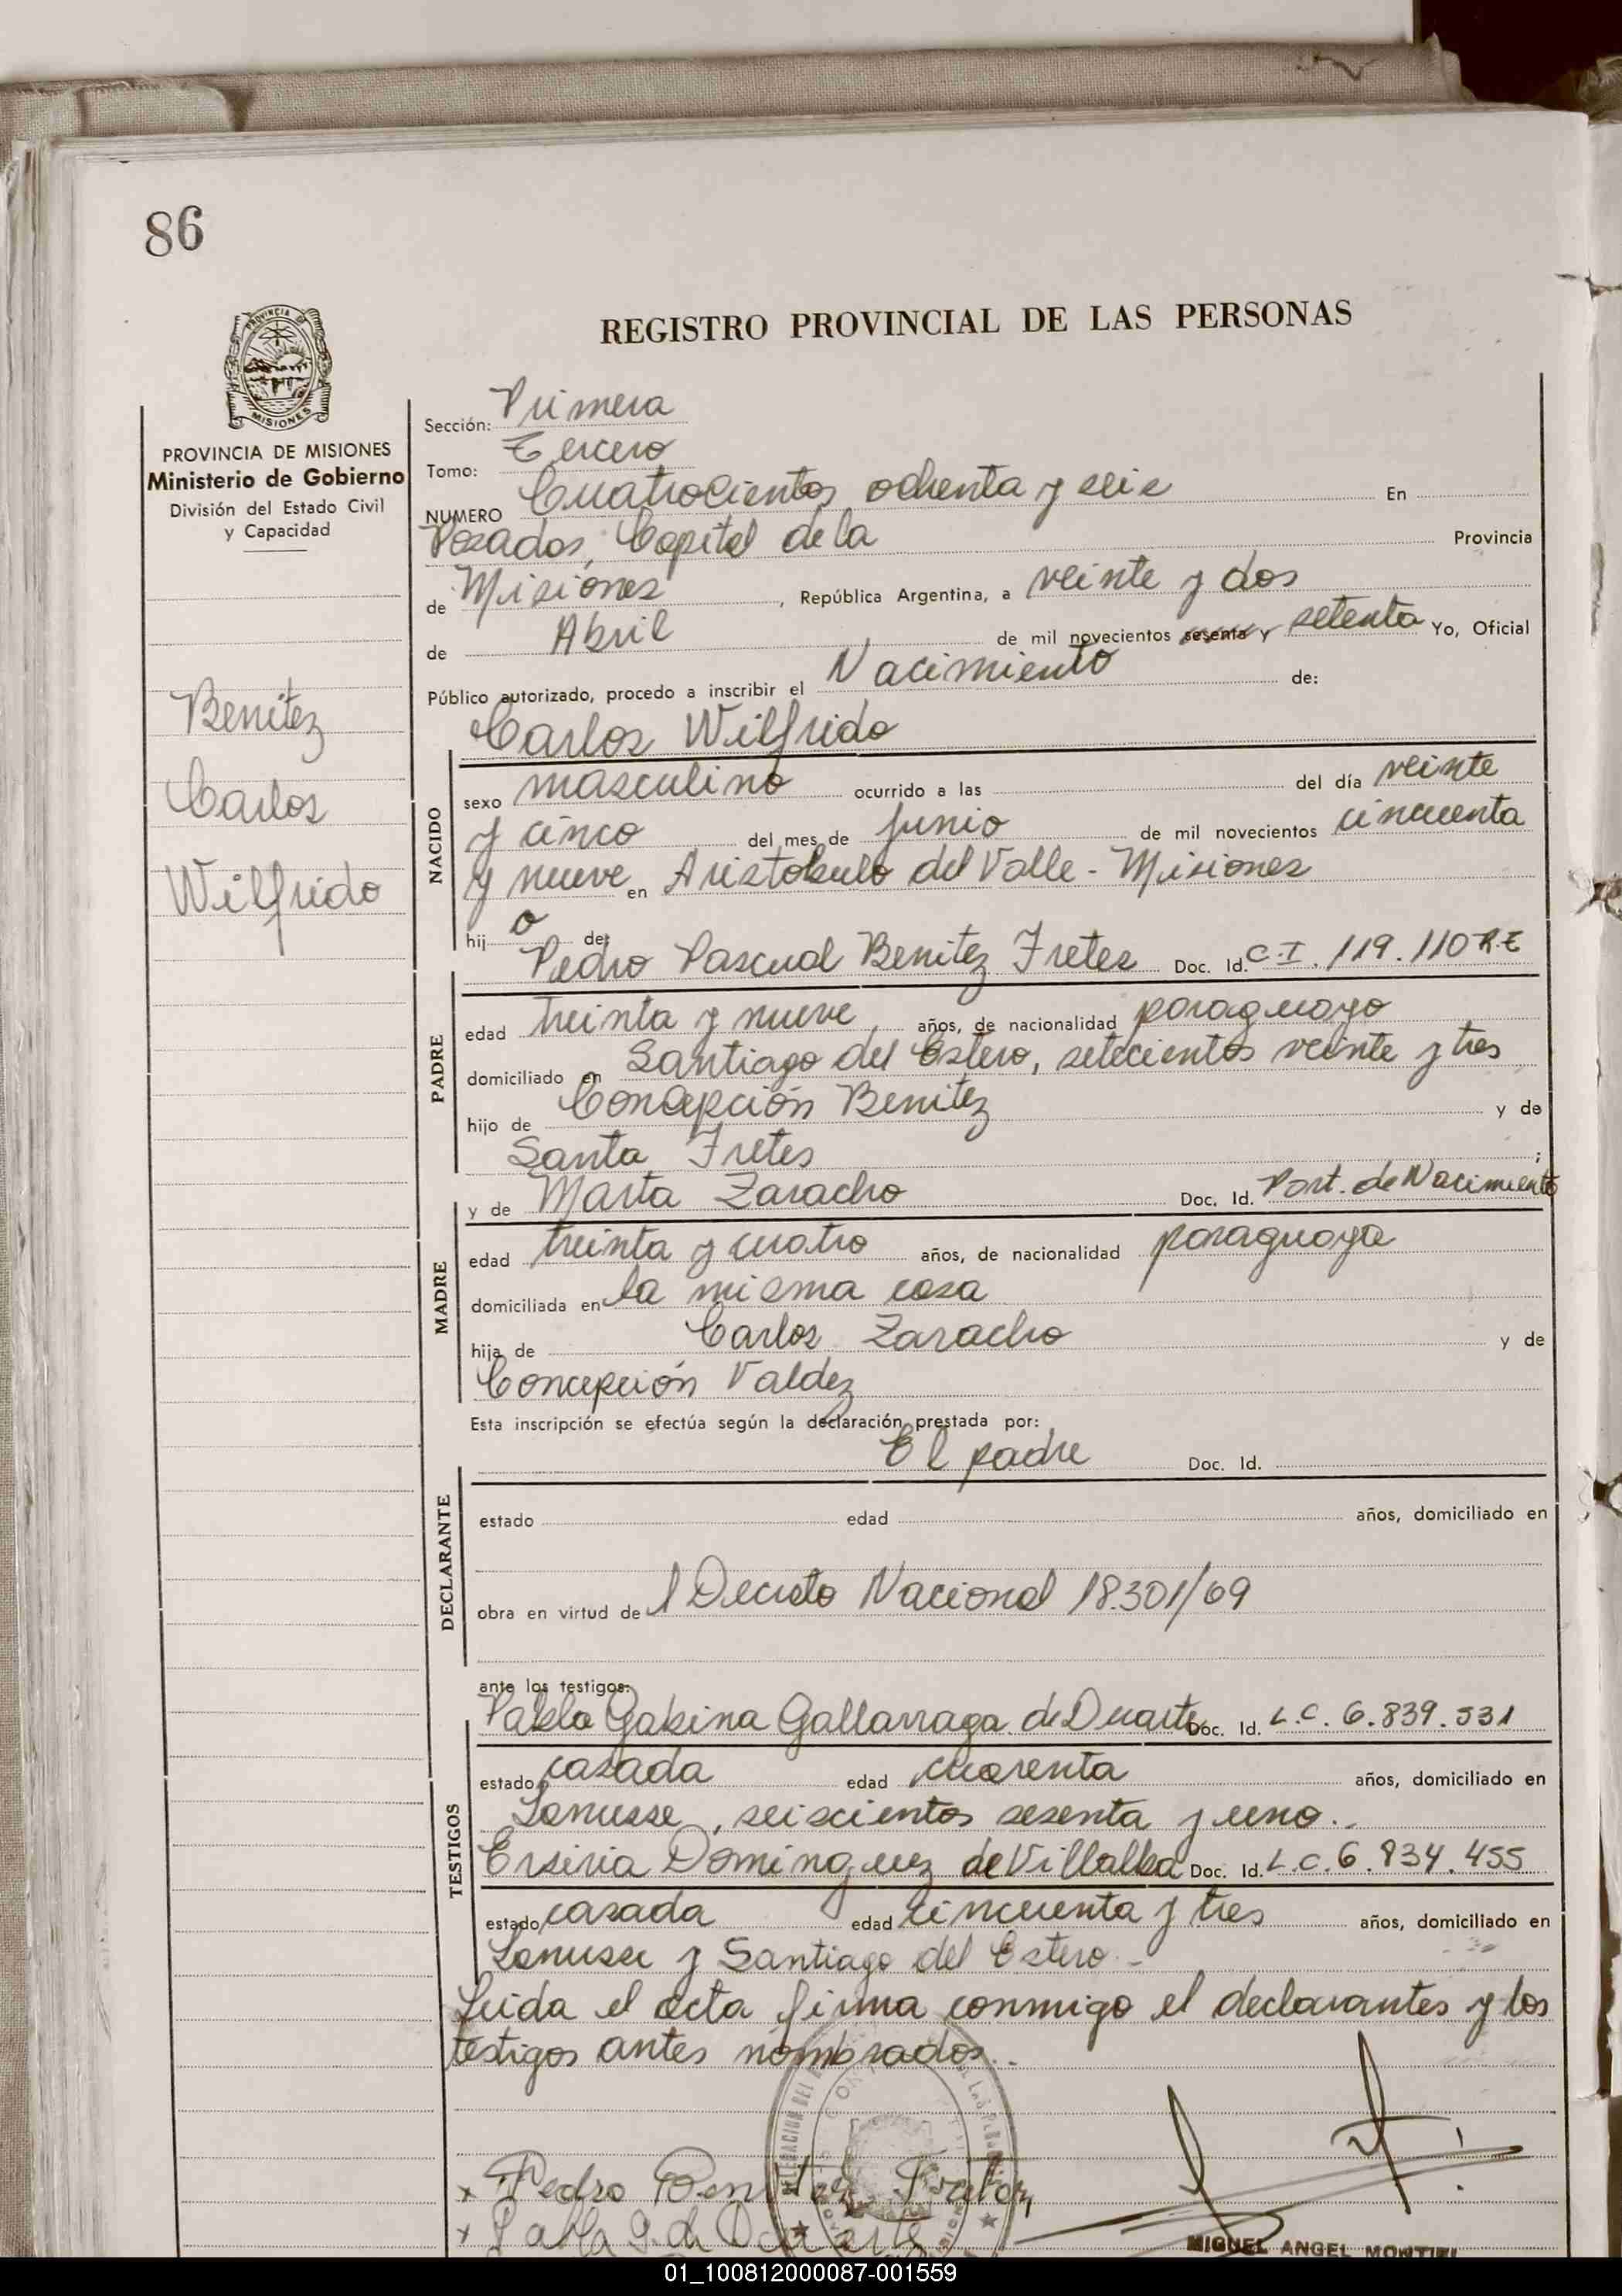 86
REGISTRO PROVINCIAL DE LAS PERSONAS
PROVINCIA
MISIONES
PROVINCIA DE MISIONES
Ministerio de Gobierno
División del Estado Civil
y Capacidad
Benitez
Carlos
Wilfrido
Sección: Primera
Tomo: Tercero
NUMERO Cuatrocientos ochenta y seis En
Posadas, Capital de la Provincia
de Misiones, República Argentina, a veinte y dos
de Abril de mil novecientos sesenta y setenta Yo, Oficial
Público autorizado, procedo a inscribir el Nacimiento de:
Carlos Wilfrido
NACIDO
sexo masculino ocurrido a las del día veinte
y cinco del mes de junio de mil novecientos cincuenta
y nueve en Aristobulo del Valle - Misiones
hij o de:
Pedro Pascual Benitez Fretes Doc. Id. C.I. 119.110 R.E
PADRE
edad treinta y nueve años, de nacionalidad paraguayo
domiciliado en Santiago del Estero, setecientos veinte y tres
hijo de Concepción Benitez y de
Santa Fretes ;
y de Marta Zaracho Doc. Id. Part. de Nacimiento
MADRE
edad treinta y cuatro años, de nacionalidad paraguaya
domiciliada en la misma casa
hija de Carlos Zaracho y de
Concepción Valdez
Esta inscripción se efectúa según la declaración prestada por:
El padre Doc. Id.
DECLARANTE
estado edad años, domiciliado en
obra en virtud de l Decreto Nacional 18.301/69
ante los testigos:
Pabla Gabina Gallarraga de Duarte Doc. Id. L.C. 6.839.531
TESTIGOS
estado casada edad cuarenta años, domiciliado en
Lanusse, seiscientos sesenta y uno.
Ersiria Dominguez de Villalba Doc. Id. L.C. 6.834.455
estado casada edad cincuenta y tres años, domiciliado en
Lanusse y Santiago del Estero.-
Leida el acta firma conmigo el declarantes y los
testigos antes nombrados.-
x Pedro Benitez Fretes
x Pabla G. de Duarte
MIGUEL ANGEL MONTIEL
01_100812000087-001559